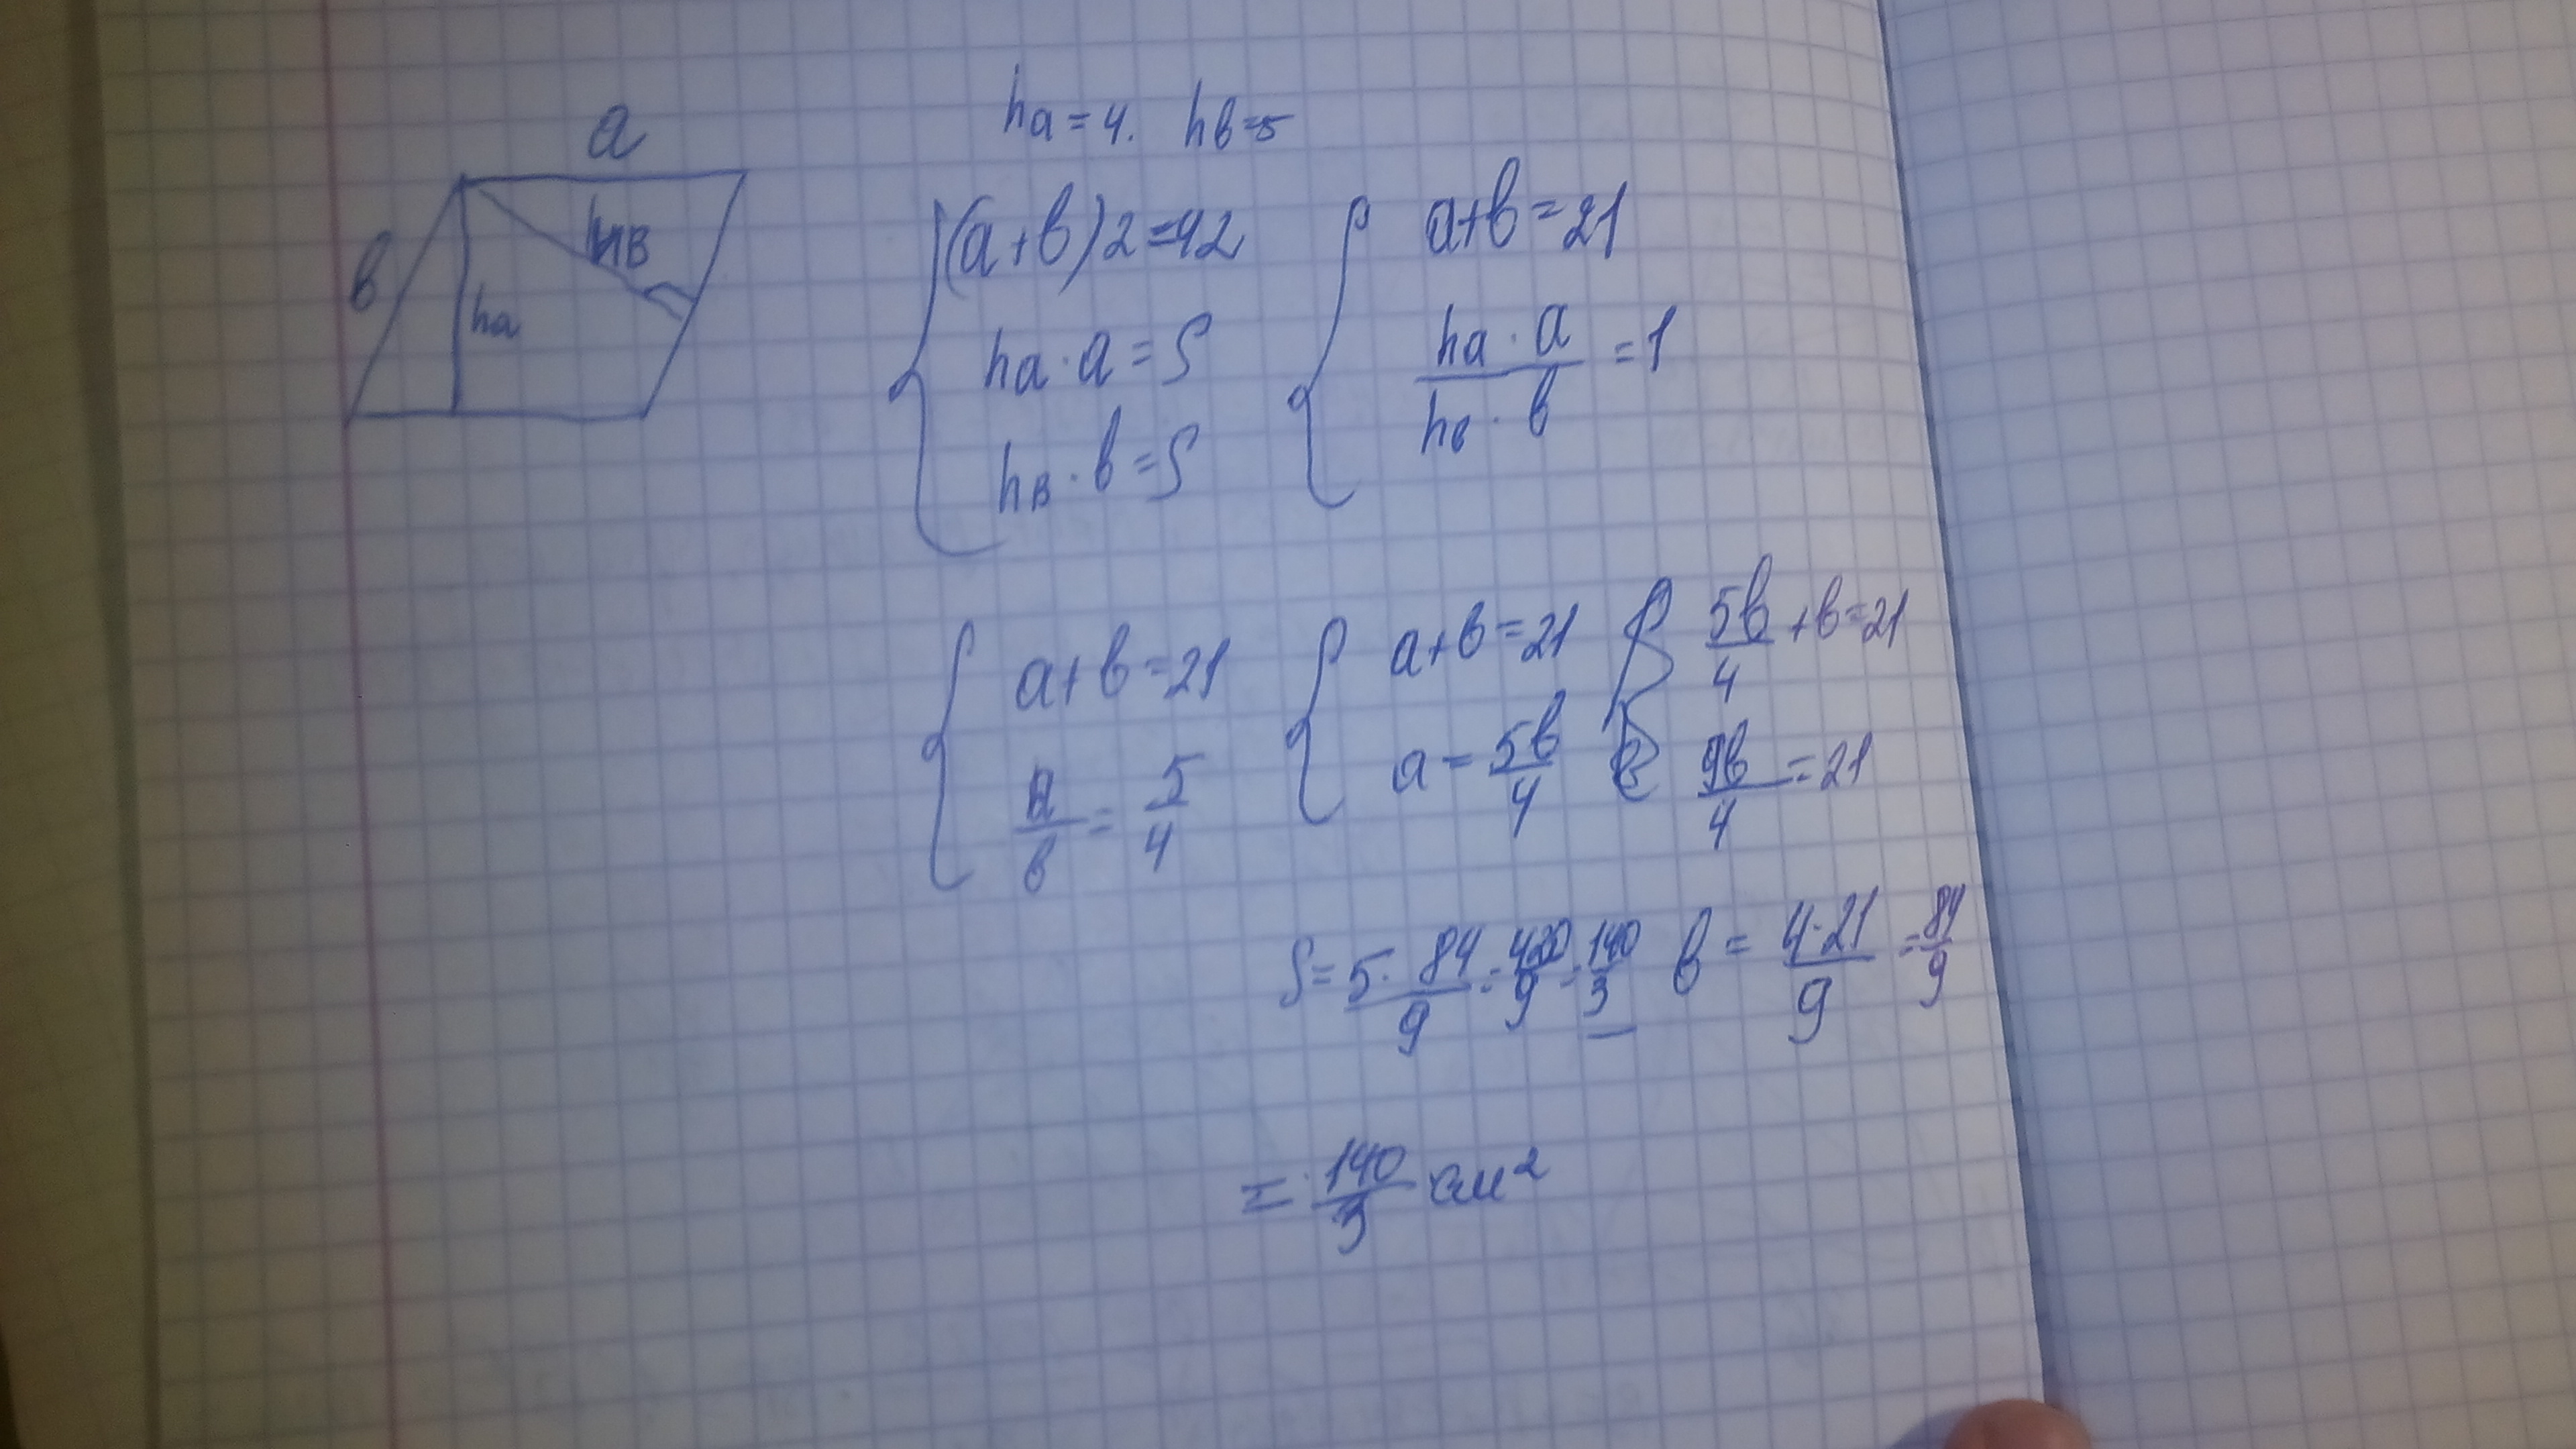 a
в
hв
ha
ha = 4. hв = 5
(a+в)2=42
ha · a = S
hв · в = S
a+в=21
ha · a / hв · в = 1
a+в=21
a/в = 5/4
a+в=21
a = 5в/4
5в/4 + в = 21
9в/4 = 21
S = 5 · 84/9 = 420/9 = 140/3
в = 4·21/9 = 84/9
= 140/3 см²